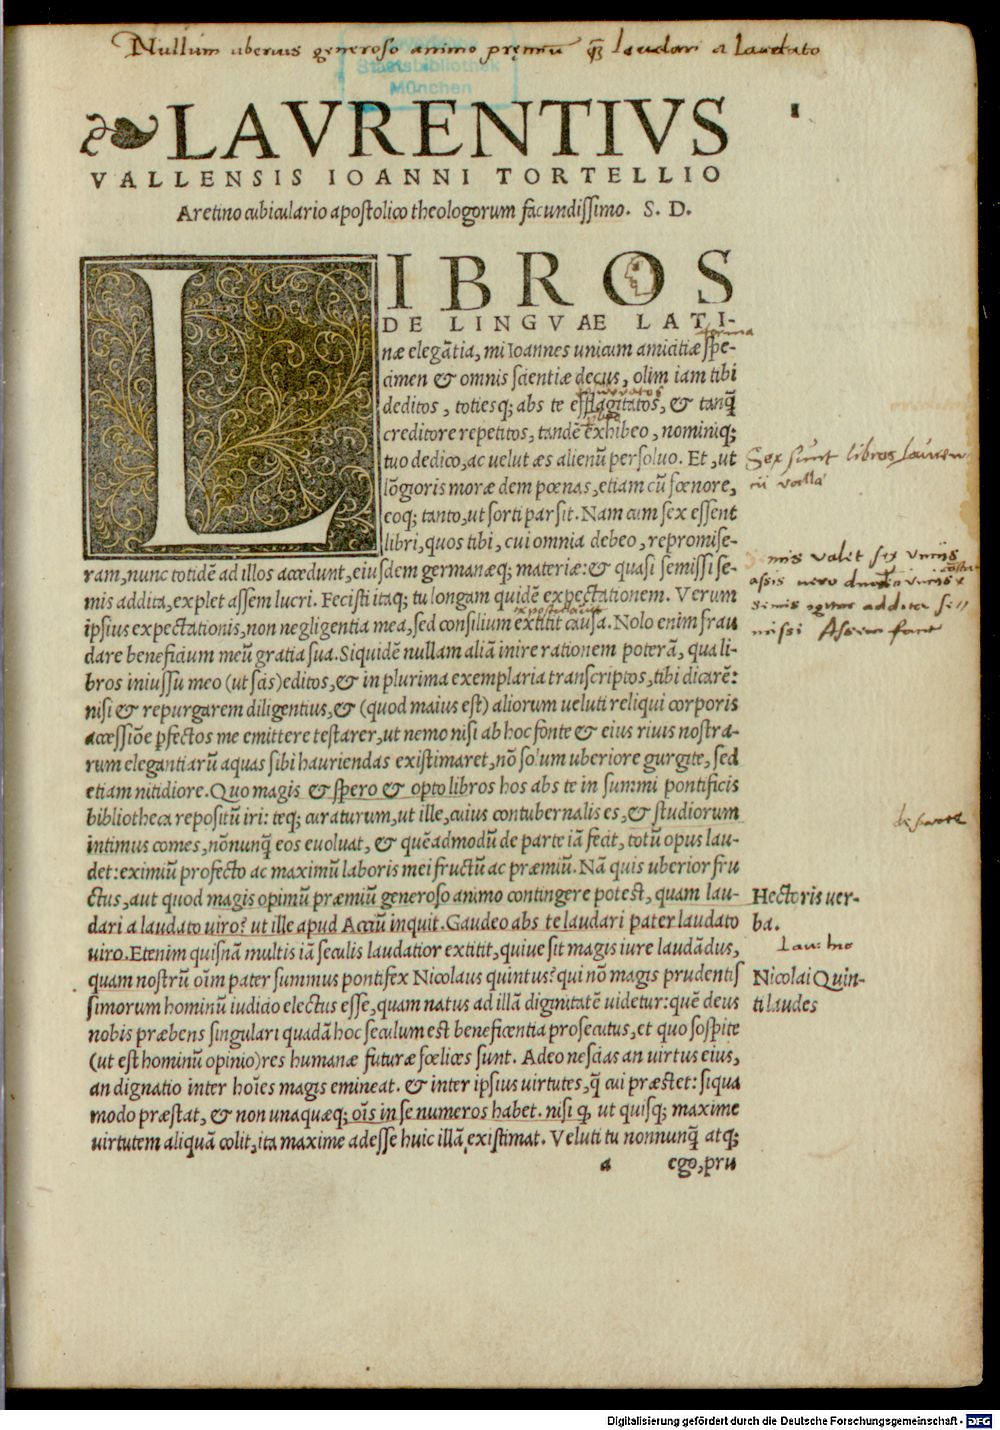 Nullum uberius generoso animo pręmiū q̄ꝫ laudari a laudato
Staatsbibliothek
München
LAVRENTIVS
VALLENSIS IOANNI TORTELLIO
Aretino cubiculario apostolico theologorum facundissimo. S. D.
LIBROS
DE LINGVAE LATI-
forma
næ elegātia, mi Ioannes unicum amicitiæ spe-
cimen & omnis scientiæ decus, olim iam tibi
deditos, totiesq; abs te efflagitatos, & tanq̄
creditore repetitos, tandē exhibeo, nominiq;
tuo dedico, ac velut æs alienū persoluo. Et, ut
lōgioris moræ dem pœnas, etiam cū fœnore,
eoq; tanto, ut sorti par sit. Nam cum sex essent
libri, quos tibi, cui omnia debeo, repromise-
ram, nunc totidē ad illos accedunt, eiusdem germanæq; materiæ: & quasi semissi se-
mis addita, explet assem lucri. Fecisti itaq; tu longam quidē expectationem. Verum
ipsius expectationis, non negligentia mea, sed consilium extitit causa. Nolo enim frau
dare beneficium meū gratia sua. Siquidē nullam aliā inire rationem poterā, qua li-
bros iniussu meo (ut scis) editos, & in plurima exemplaria transcriptos, tibi dicarē:
nisi & repurgarem diligentius, & (quod maius est) aliorum ueluti reliqui corporis
accessiōe pfectos me emittere testarer, ut nemo nisi ab hoc fonte & eius riuis nostra-
rum elegantiarū aquas sibi hauriendas existimaret, nō solum uberiore gurgite, sed
etiam nitidiore. Quo magis & spero & opto libros hos abs te in summi pontificis
bibliotheca repositū iri: teq; curaturum, ut ille, cuius contubernalis es, & studiorum
intimus comes, nōnunq̄ eos euoluat, & quēadmodū de parte iā fecit, totū opus lau-
det: eximiū profecto ac maximū laboris mei fructū ac præmiū. Nā quis uberior fru
ctus, aut quod magis opimū præmiū generoso animo contingere potest, quam lau-
dari a laudato uiro? ut ille apud Acciū inquit. Gaudeo abs te laudari pater laudato
uiro. Etenim quisnā multis iā seculis laudatior extitit, quiue sit magis iure laudādus,
quam nostrū oīm pater summus pontifex Nicolaus quintus? qui nō magis prudentis
simorum hominū iudicio electus esse, quam natus ad illā dignitatē uidetur: quē deus
nobis præbens singulari quadā hoc seculum est beneficentia prosecutus, et quo sospite
(ut est hominū opinio) res humanæ futuræ fœlices sunt. Adeo nescias an uirtus eius,
an dignatio inter hoīes magis emineat. & inter ipsius uirtutes, q̄ cui præstet: siqua
modo præstat, & non unaquæq; oīs in se numeros habet. nisi q, ut quisq; maxime
uirtutem aliquā colit, ita maxime adesse huic illā existimat. Veluti tu nonnunq̄ atq;
a ego, pru
Sex sunt libros Lauren
tii valla
assis vero
semis igitur addita se//
missi Assem fant
Hectoris uer-
ba.
Nicolai Quin-
ti laudes
Digitalisierung gefördert durch die Deutsche Forschungsgemeinschaft - DFG